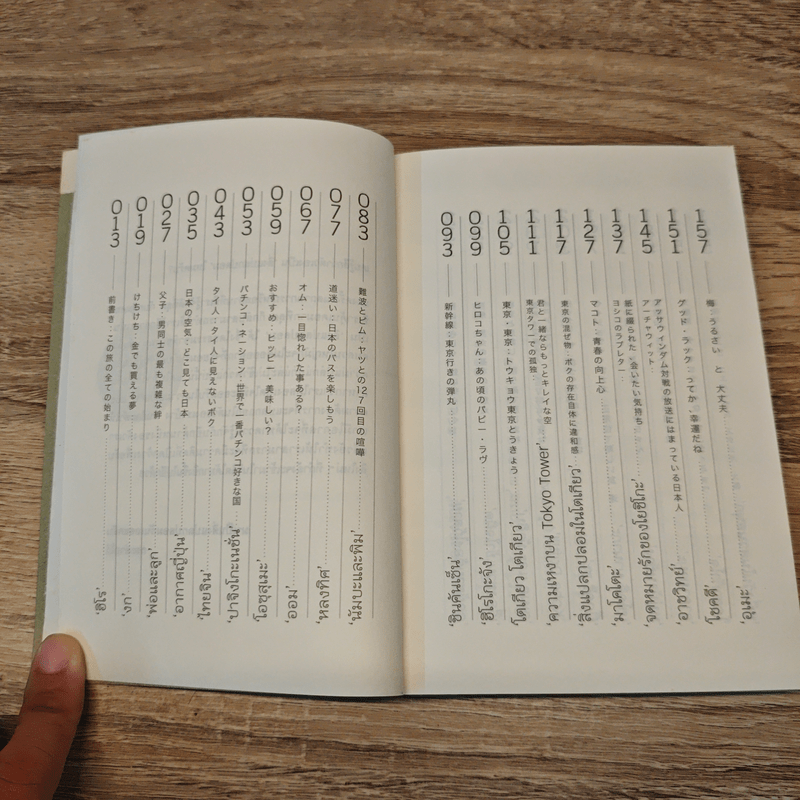 013
前書き：この旅の全ての始まり
‘ฮิโร’
019
けちけち：金でも買える夢
‘งก’
027
父子：男同士の最も複雑な絆
‘พ่อและลูก’
035
日本の空気：どこ見ても日本
‘อากาศญี่ปุ่น’
043
タイ人：タイ人に見えないボク
‘ไทยจีน’
053
パチンコ・ネーション：世界で一番パチンコ好きな国
‘ปาจิงโกะเนชั่น’
059
おすすめ：ヒッピー・美味しい？
‘โอซุสุเมะ’
067
オム：一目惚れした事ある？
‘ออม’
077
道迷い：日本のバスを楽しもう
‘หลงทิศ’
083
難波とピム：ヤツとの127回目の喧嘩
‘นัมบะและพิม’
093
新幹線：東京行きの弾丸
‘ชินคันเซ็น’
099
ヒロコちゃん：あの頃のパピー・ラヴ
‘ฮิโรโกะจัง’
105
東京・東京：トウキョウ東京とうきょう
‘โตเกียว โตเกียว’
111
君と一緒ならもっとキレイな空
東京タワーでの孤独
‘ความเหงาบน Tokyo Tower’
117
東京の混ぜ物：ボクの存在自体に違和感
‘สิ่งแปลกปลอมในโตเกียว’
127
マコト：青春の向上心
‘มาโคโตะ’
137
紙に綴られた、会いたい気持ち
ヨシコのラブレター
‘จดหมายรักของโยชิโกะ’
145
アッサウィンダム対戦の放送にはまっている日本人
アーチャウィット
‘อาชวิทย์’
151
グッド・ラック：ってか、幸運だね
‘โชคดี’
157
梅：うるさい と 大丈夫
‘อุเมะ’